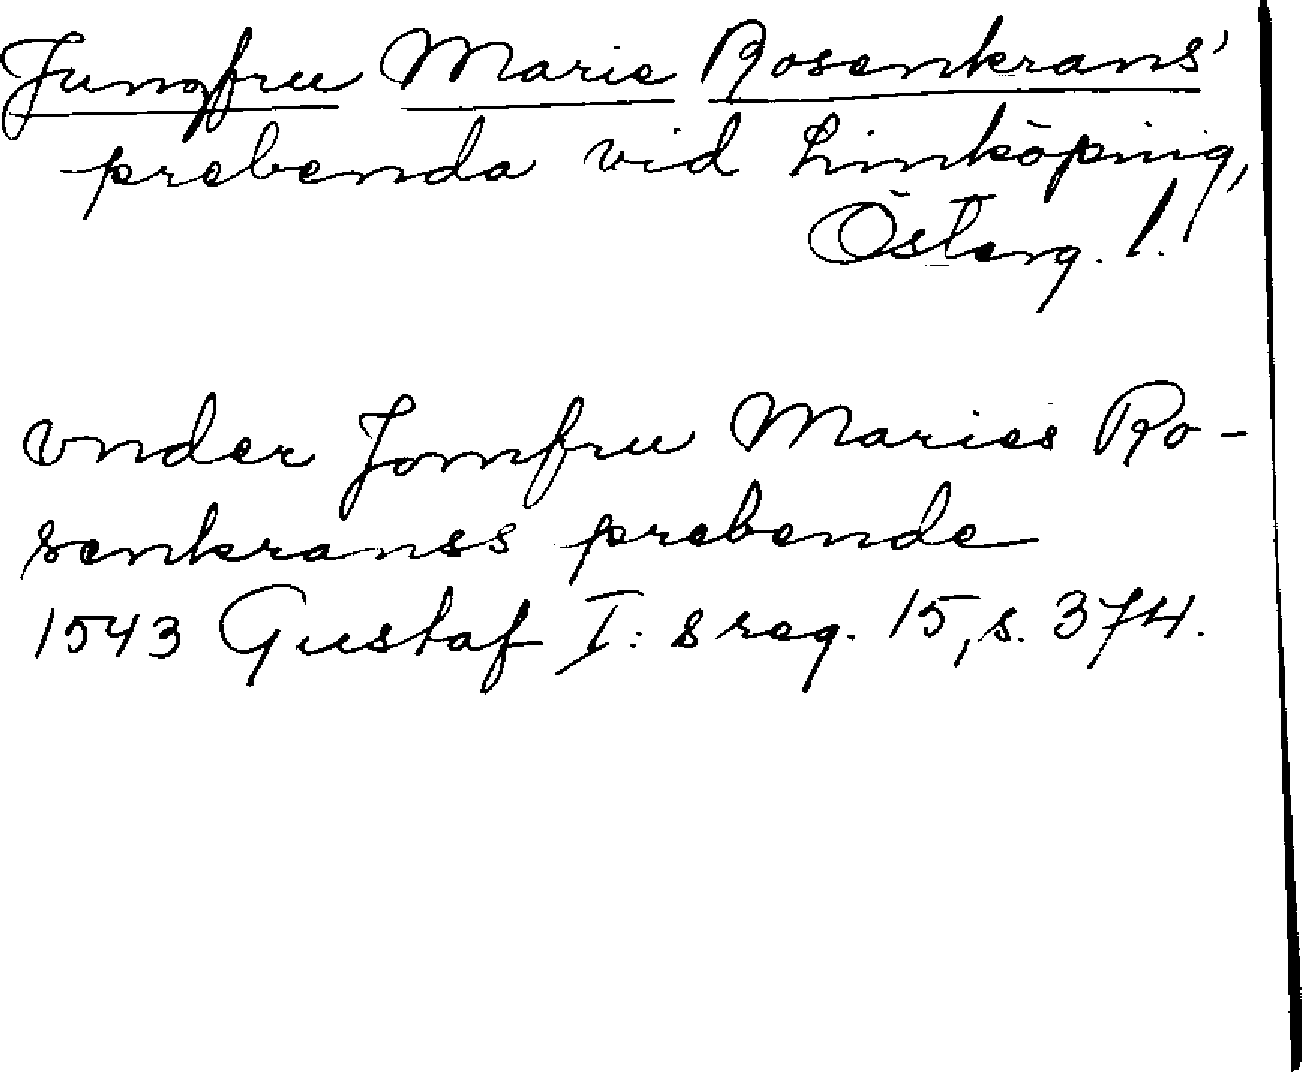 Jungfru Marie Rosenkrans'
prebenda vid Linköping,
Österg. l.
vnder Jomfru Maries Ro-
senkranss prebende
1543 Gustaf I: s reg. 15, s. 374.